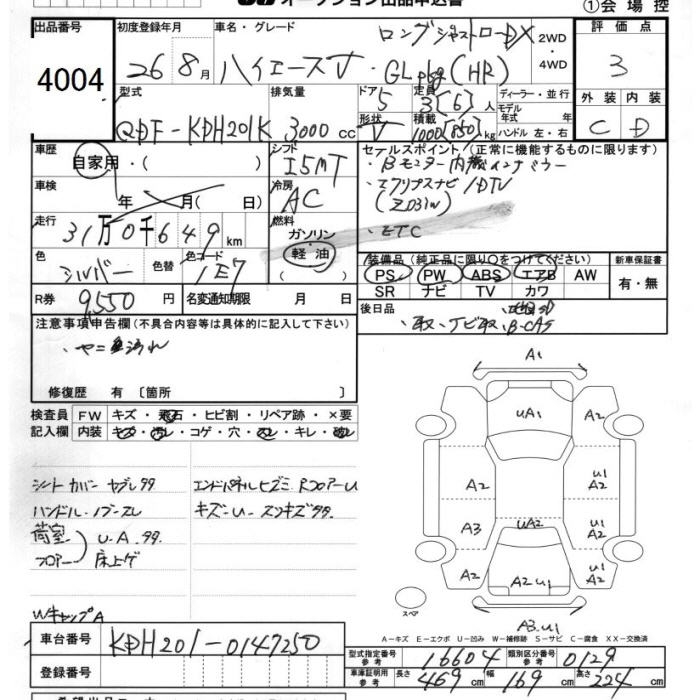 オークション出品申込書 ①会場控
出品番号 4004
初度登録年月 26年8月
車名・グレード ロングジャストローDX 2WD・4WD
ハイエースV・GLpkg(HR)
評価点 3
外装 C 内装 D
型式 QDF-KDH201K
排気量 3000cc
ドア 5 形状 V
定員 3[6]人
積載 1000[850]kg
ディーラー・並行
モデル年式 年式
ハンドル 左・右
車歴 自家用・( )
シフト I5MT
車検 年 月( 日)
冷房 AC
走行 31万0千649km
燃料 ガソリン 軽油 ( )
色 シルバー 色替 色コード 1E7
R券 9,550円 名変通知期限 月 日
セールスポイント(正常に機能するものに限ります)
・Bモニター内機インナミラー
・エクリプスナビ/DTV
(Z031W)
・ETC
装備品(純正品に限り○をつけてください)
PS PW ABS エアB AW
SR ナビ TV カワ
新車保証書 有・無
後日品
・取、ナビ取、B-CAS
注意事項申告欄(不具合内容等は具体的に記入して下さい)
・ヤニ汚れ
修復歴 有〔箇所 〕
検査員記入欄
FW キズ・飛石・ヒビ割・リペア跡・×要
内装 キズ・汚レ・コゲ・穴・スレ・キレ・
シートカバーヤブレ99
ハンドル・ノブスレ
荷室 フロアー U・A・99.
床上ゲ
WキャップA
エンドパネルヒズミ RフロアーU
キズ-U-スンキズ99.
A1
UA1 A2
A2 U1 A2
A3 UA2 U1 A2
A2 A2U1 U1 A2
A3.U1
スペア
A-キズ E-エクボ U-凹み W-補修跡 S-サビ C-腐食 XX-交換済
車台番号 KDH201-0147250
登録番号
型式指定番号 参考 16604 類別区分番号 参考 0129
車庫証明用 参考 長さ 469cm 幅 169cm 高さ 224cm